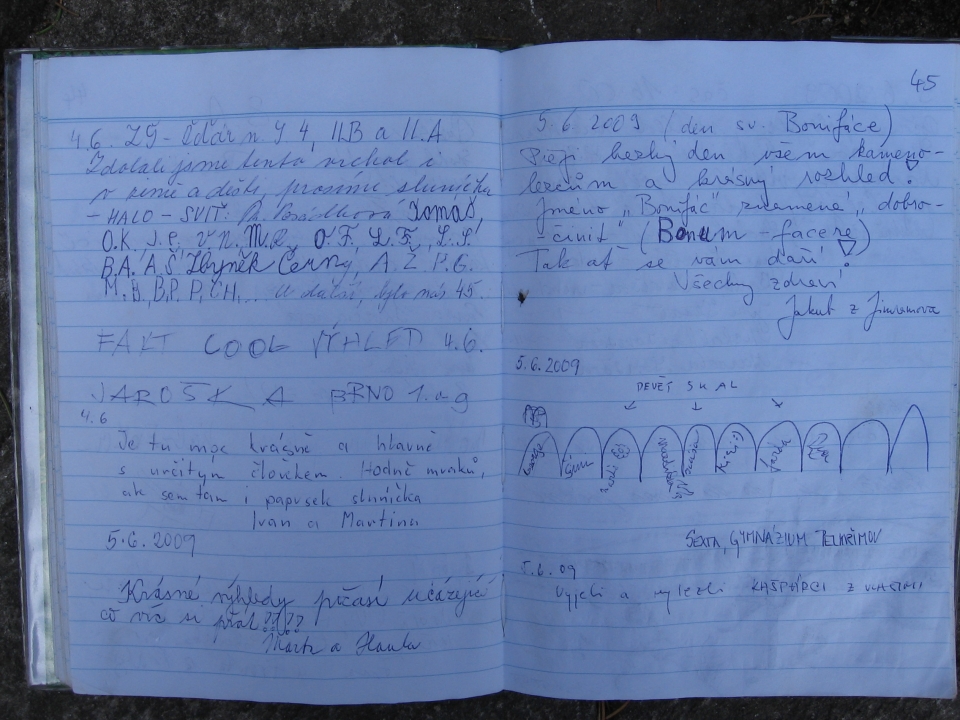 4.6. ZŠ - Žďár n. S 4, II.B a II.A
Zdolali jsme tento vrchol i
v zimě a dešti, prosíme sluníčko
- HALO - SVIŤ: Tomáš,
O.K, J.P, V.N. M.R, O.F. L.F, L.S.
B.A. A.Š. Zbyněk Černý, A.Ž. P.G.
M.B., B.P. P.CH... a další, bylo nás 45.
FAKT COOL VÝHLED 4.6.
JAROŠKA BRNO 1.a g
4.6
Je tu moc krásně a hlavně
s určitým člověkem. Hodně mraků,
ale sem tam i paprsek sluníčka
Ivan a Martina
5.6.2009
Krásné výhledy počasí ucházející
co víc si přát ????
a Hanka
45
5.6.2009 (den sv. Bonifáce)
Přeji hezký den všem kameno-
lezcům a krásný rozhled!
Jméno „Bonifác" znamená „dobro-
-činit" (Bonum - facere)
Tak ať se vám daří!
Všechny zdraví
Jakub z Jimramova
5.6.2009
DEVĚT SKAL
SEXTA, GYMNÁZIUM PELHŘIMOV
5.6.09
Vyjeli a vylezli KAŠPÁRCI Z VLASIMI